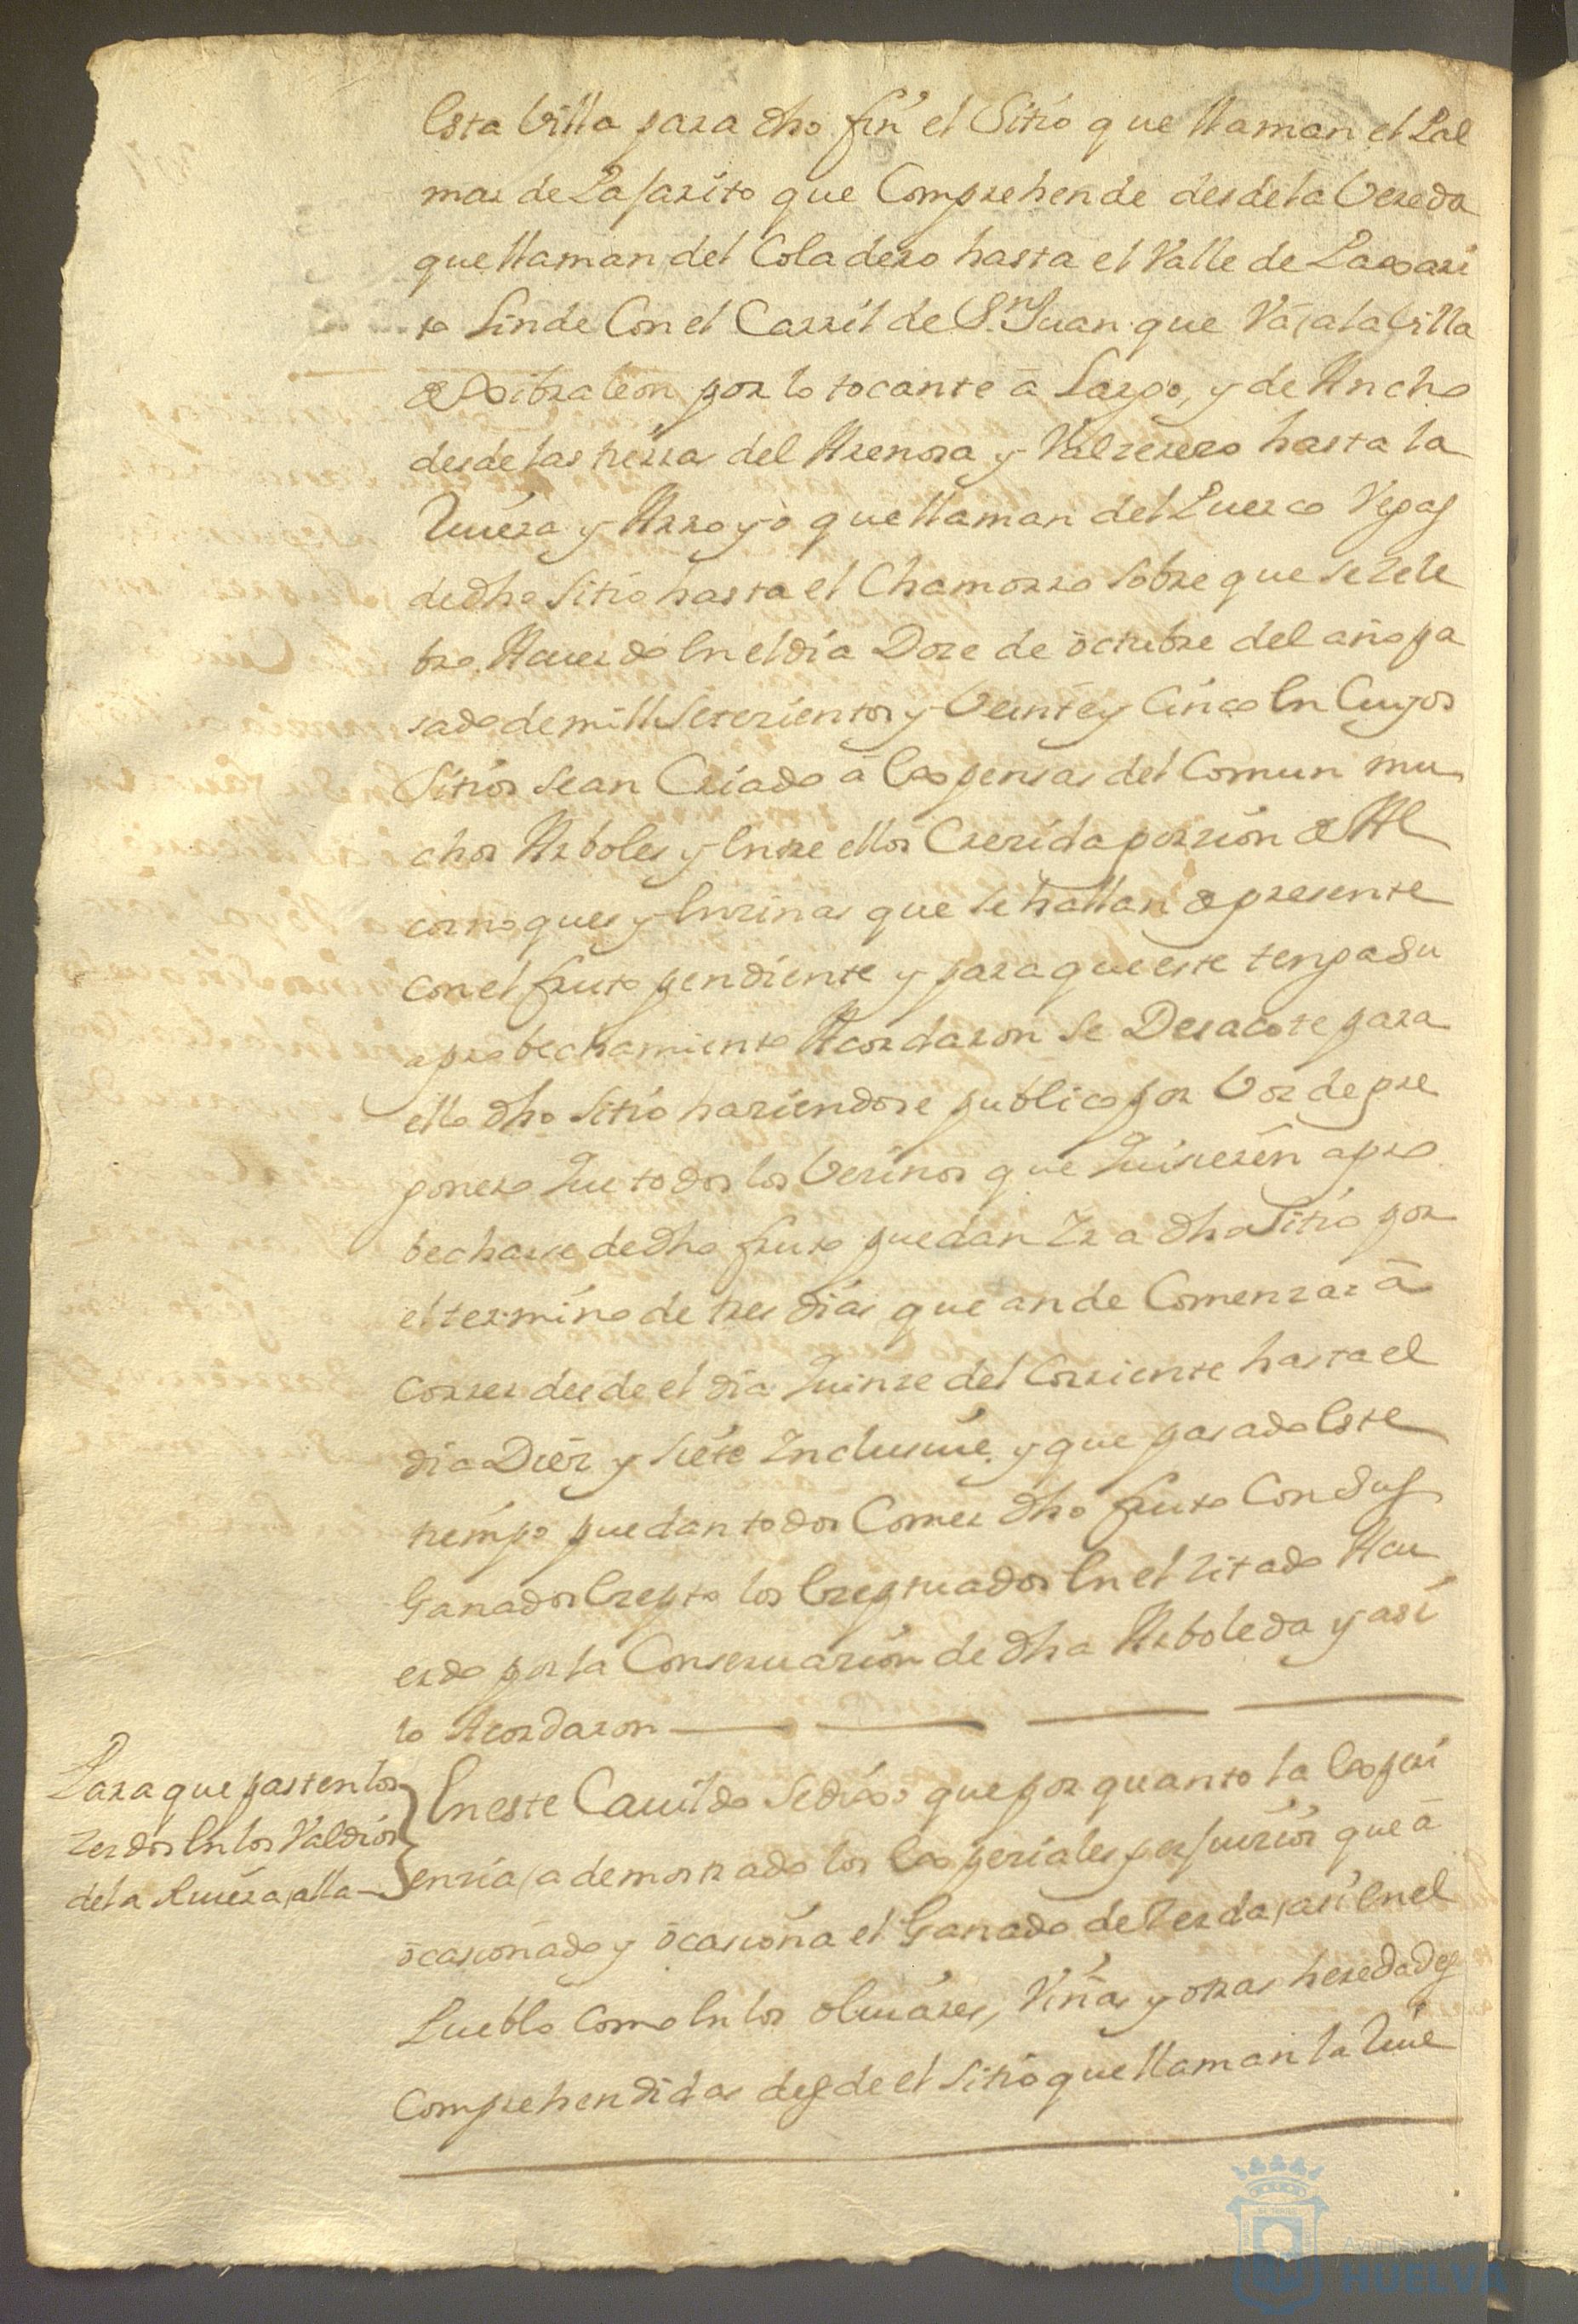 esta Villa para dho fin el Sitio que llaman el Pal
mar de Pajarito que Comprehende desde la Vereda
que llaman del Coladero hasta el Valle de Paxari
to Linde Con el Carril de Sn Juan que Va a la Villa
de Xibraleon por lo tocante â Largo, y de Ancho
desde las tierras del y hasta la
Riuera y Arroyo que llaman del Puerco Vegas
de dho Sitio hasta el Chamorro sobre que se zele
bro Acuerdo en el dia Doze de octubre del año pa
sado de mill Setezientos y Veinte y Cinco en Cuyos
Sitios se an Criado â expensas del Comun mu
chos Arboles y entre ellos Crezida porzion de Al
cornoques y enzinas que se hallan de presente
con el fruto pendiente y para que este tenga su
aprobechamiento Acordaron Se Desacote para
ello dho sitio haziendose publico por Voz de pre
gonero Que todos los Vezinos que Quisieren apro
becharse de dho fruto puedan Ir a dho Sitio por
el termino de tres dias que an de Comenzar â
correr desde el dia Quinze del Corriente hasta el
dia Diez y Siete Inclusiue y que pasado este
tiempo puedan todos Comer dho fruto Con sus
Ganados Exepto los Exeptuados en el zitado Acu
erdo por la Conseruazion de dha Arboleda y asi
lo Acordaron
Para que pasten los
zerdos en los Valdios
de la Riuera alla
En este Cauildo Se dixo que por quanto la Experi
enzia a demostrado los Experiales perjuizios que â
ocasionado y ocasiona el Ganado de Zerda, asi en el
Pueblo como en los oliuares, Viñas y otras heredades
Comprehendidas desde el sitio que llaman la Riue
HUELVA